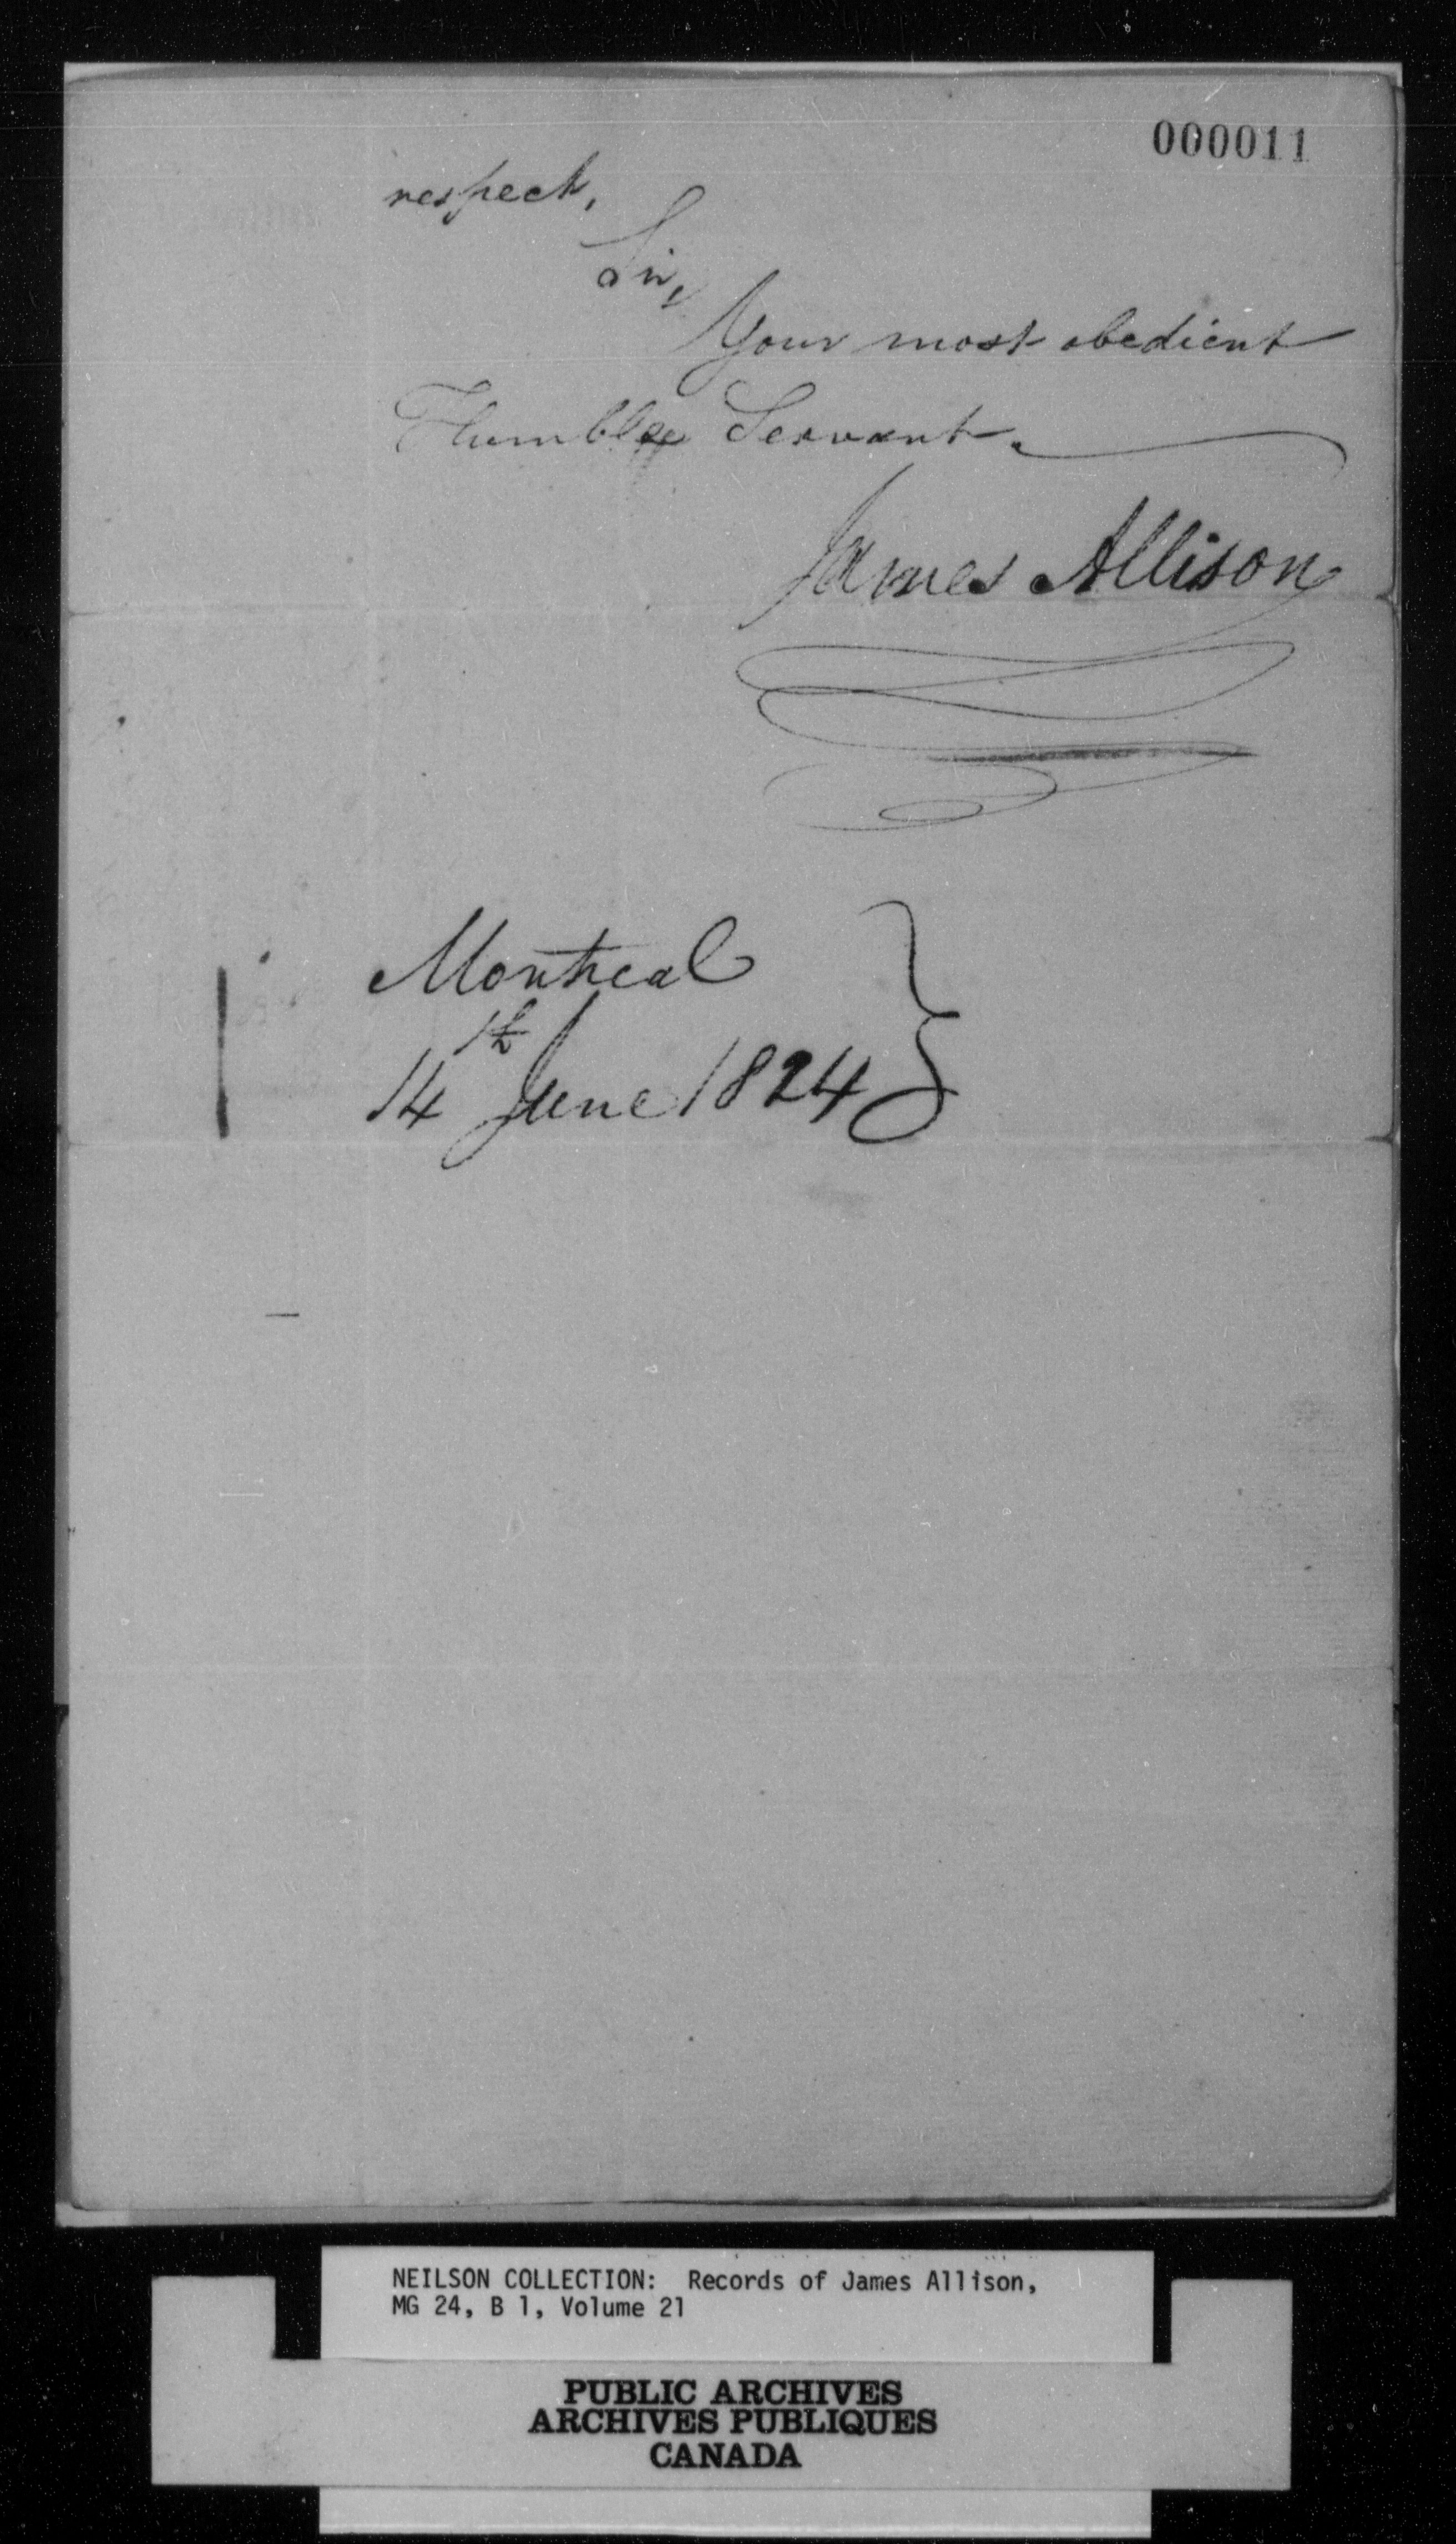 000011
respect,
Sir,
Your most obedient
Humble Servant.
James Allison
Montreal
14th June 1824
NEILSON COLLECTION: Records of James Allison,
MG 24, B 1, Volume 21
PUBLIC ARCHIVES
ARCHIVES PUBLIQUES
CANADA